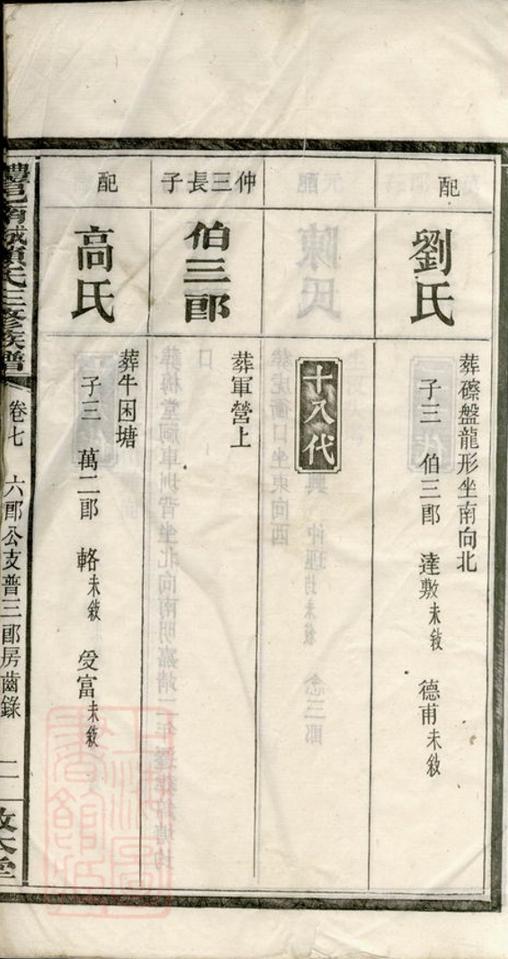 配
劉氏
葬磜盤龍形坐南向北
子三 伯三郎 達敷未敘 德甫未敘
十八代
仲三長子
伯三郎
葬軍營上
配
高氏
葬牛困塘
子三 萬二郎 輅未敘 受富未敘
氏三修族譜
卷七 六郎公支普三郎房齒錄 二